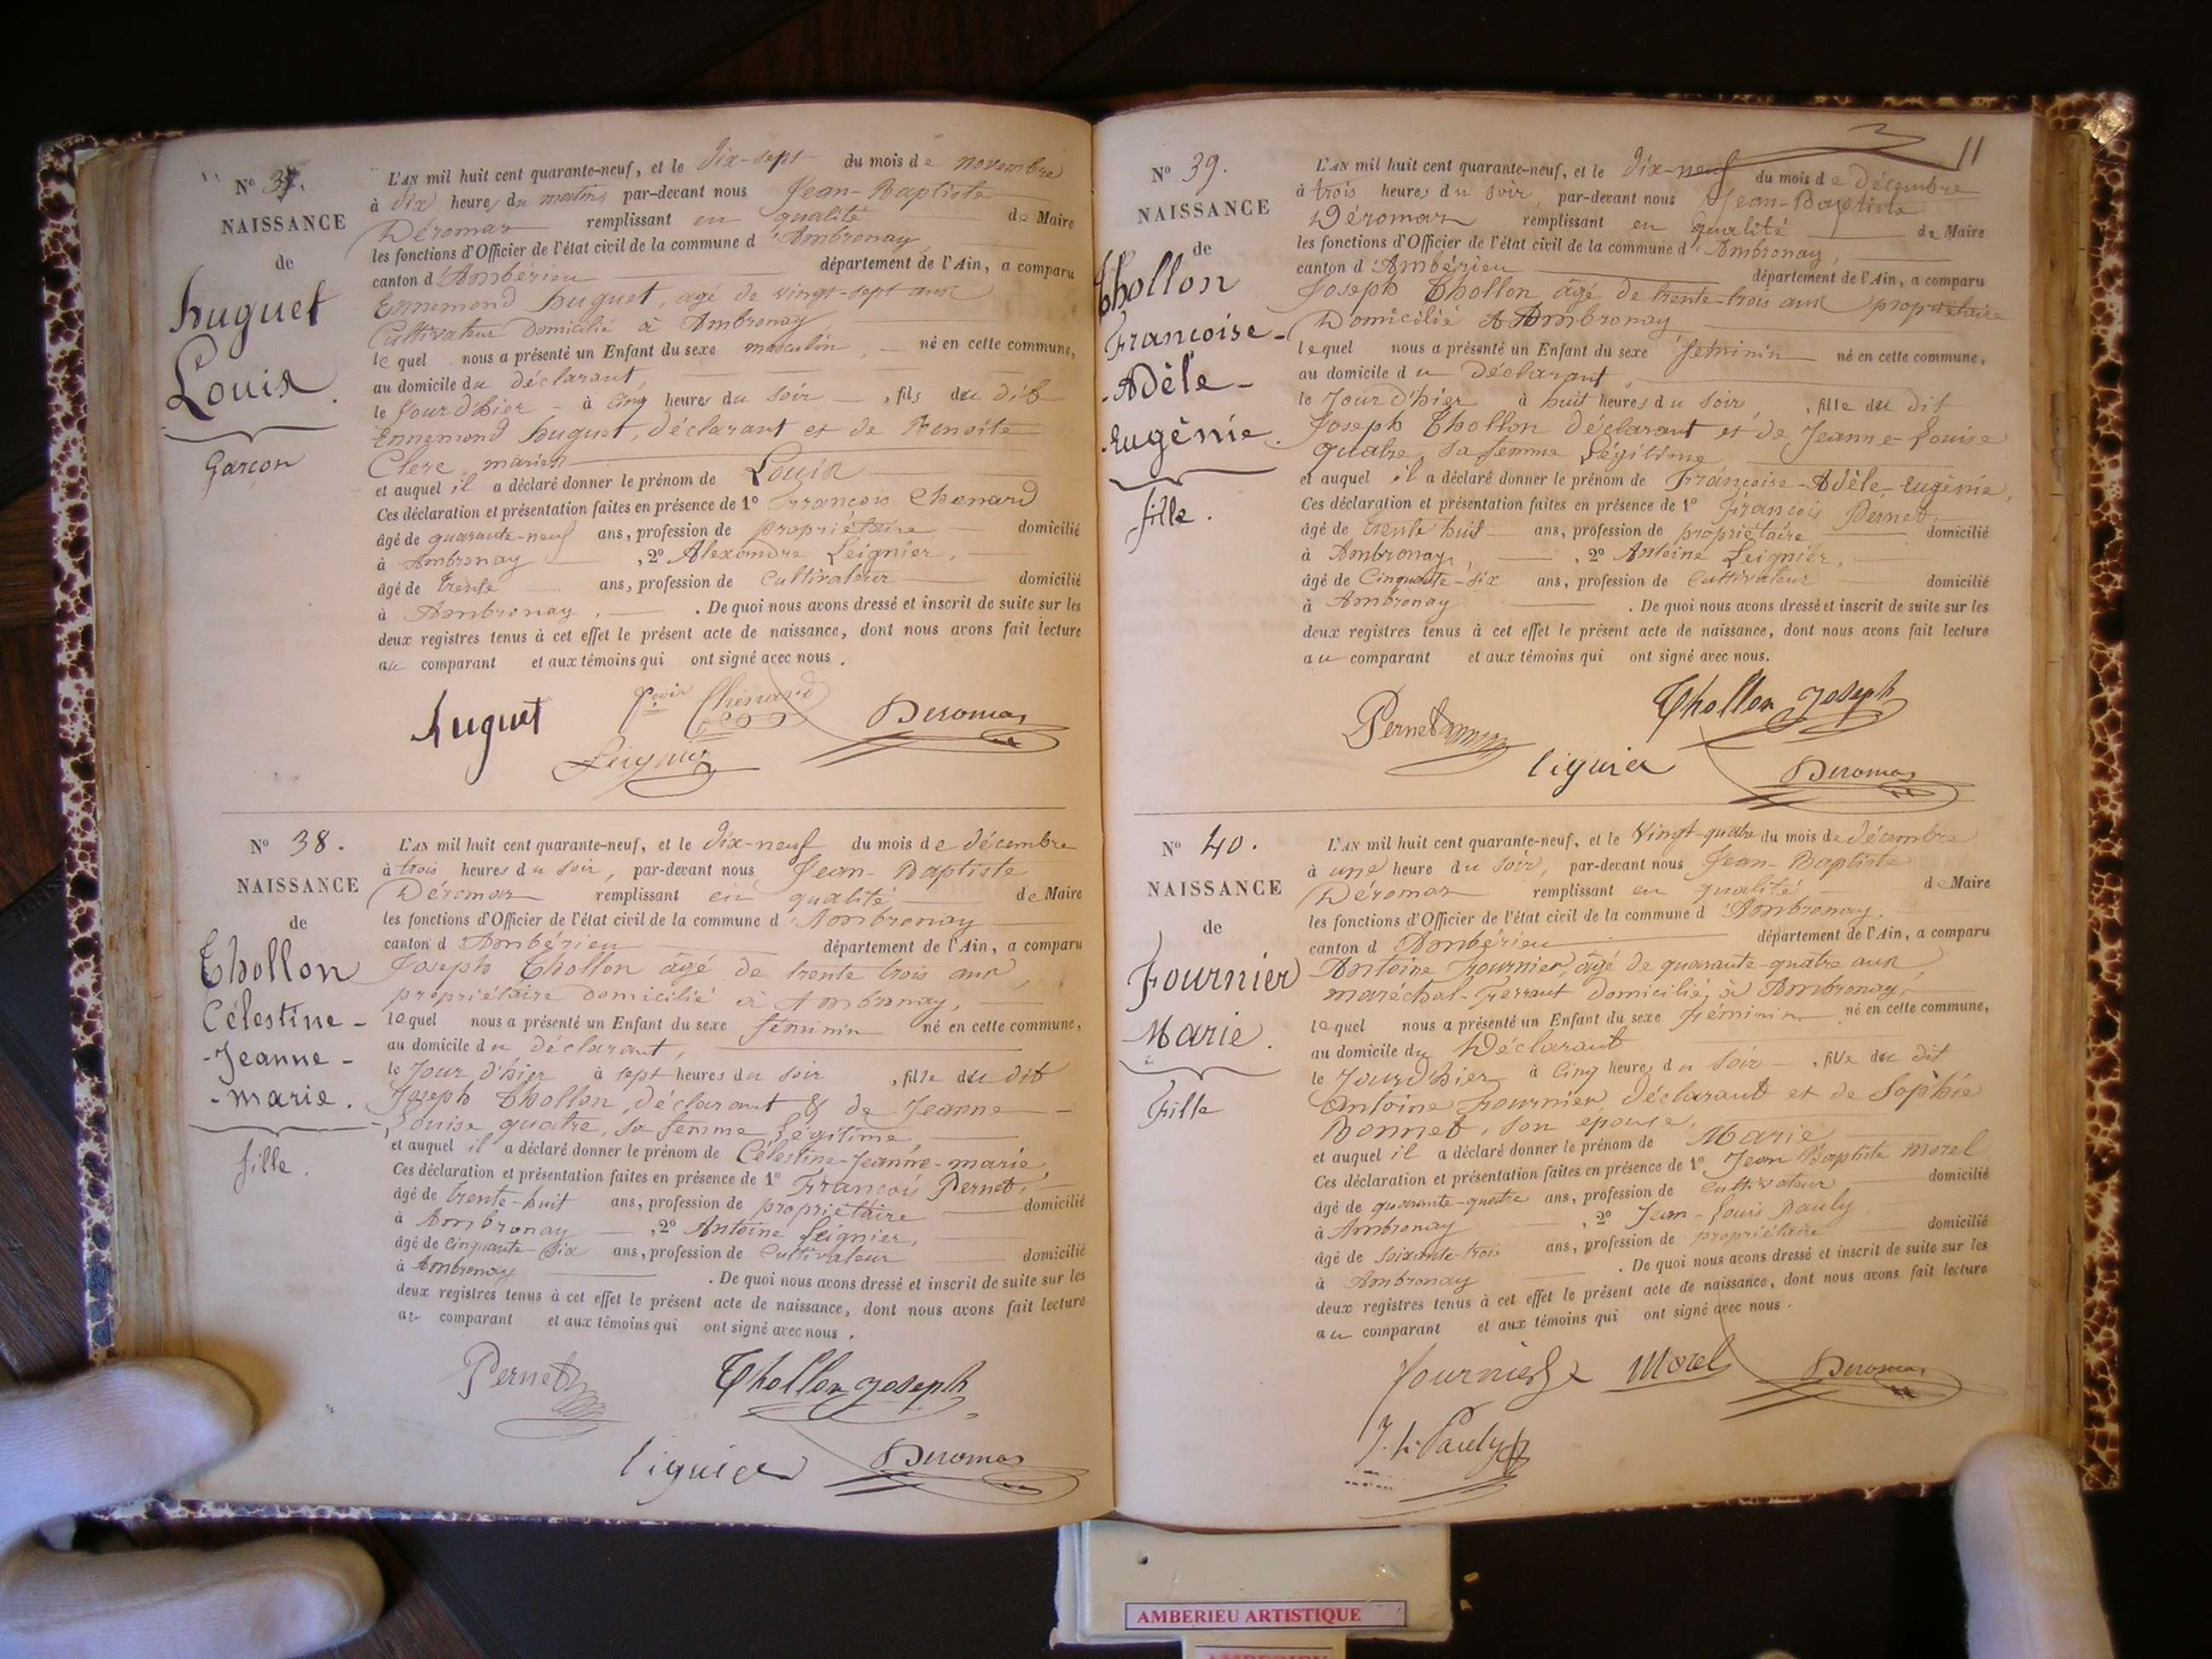 N° 37.
NAISSANCE
de
huguet
Louis.
Garçon
L'AN mil huit cent quarante-neuf, et le dix-sept du mois de novembre
à dix heures du matin, par-devant nous Jean-Baptiste
Déromas remplissant en qualité de Maire
les fonctions d'Officier de l'état civil de la commune d'Ambronay,
canton d'Ambérieu département de l'Ain, a comparu
Ennemond huguet, agé de vingt-sept ans
Cultivateur domicilié à Ambronay
lequel nous a présenté un Enfant du sexe masculin, né en cette commune,
au domicile du déclarant,
le Jour d'hier à cinq heures du soir, fils du dit
Ennemond huguet, déclarant et de Benoite
Clerc, mariés
et auquel il a déclaré donner le prénom de Louis
Ces déclaration et présentation faites en présence de 1° François Chenard
âgé de quarante-neuf ans, profession de propriétaire domicilié
à Ambronay, 2° Alexandre Leignier,
âgé de trente ans, profession de Cultivateur domicilié
à Ambronay. De quoi nous avons dressé et inscrit de suite sur les
deux registres tenus à cet effet le présent acte de naissance, dont nous avons fait lecture
au comparant et aux témoins qui ont signé avec nous.
huguet Chenard Deromas
Leignier
N° 38.
NAISSANCE
de
Thollon
Célestine-
-Jeanne-
-marie.
fille.
L'AN mil huit cent quarante-neuf, et le dix-neuf du mois de décembre
à trois heures du soir, par-devant nous Jean-Baptiste
Déromas remplissant en qualité de Maire
les fonctions d'Officier de l'état civil de la commune d'Ambronay
canton d'Ambérieu département de l'Ain, a comparu
Joseph Thollon âgé de trente trois ans,
propriétaire domicilié à Ambronay,
lequel nous a présenté un Enfant du sexe féminin né en cette commune,
au domicile du déclarant,
le Jour d'hier à sept heures du soir, fille du dit
Joseph Thollon, déclarant & de Jeanne-
-Louise quatre, sa femme Légitime,
et auquel il a déclaré donner le prénom de Célestine-Jeanne-marie,
Ces déclaration et présentation faites en présence de 1° François Pernet,
âgé de trente-huit ans, profession de propriétaire domicilié
à Ambronay, 2° Antoine Leignier,
âgé de cinquante-six ans, profession de Cultivateur domicilié
à Ambronay. De quoi nous avons dressé et inscrit de suite sur les
deux registres tenus à cet effet le présent acte de naissance, dont nous avons fait lecture
au comparant et aux témoins qui ont signé avec nous.
Pernet Thollon Joseph
liguier Deromas
11
N° 39.
NAISSANCE
de
Thollon
Françoise-
-Adèle-
-Eugénie.
fille.
L'AN mil huit cent quarante-neuf, et le dix-neuf du mois de décembre
à trois heures du soir, par-devant nous Jean-Baptiste
Déromas remplissant en qualité de Maire
les fonctions d'Officier de l'état civil de la commune d'Ambronay,
canton d'Ambérieu département de l'Ain, a comparu
Joseph Thollon âgé de trente-trois ans propriétaire
Domicilié A Ambronay
lequel nous a présenté un Enfant du sexe féminin né en cette commune,
au domicile du Déclarant,
le Jour d'hier à huit heures du soir, fille du dit
Joseph Thollon déclarant et de Jeanne-Louise
quatre, sa femme Légitime
et auquel il a déclaré donner le prénom de Françoise-Adèle-Eugénie,
Ces déclaration et présentation faites en présence de 1° François Pernet,
âgé de trente huit ans, profession de propriétaire domicilié
à Ambronay, 2° Antoine Leignier,
âgé de Cinquante-six ans, profession de Cultivateur domicilié
à Ambronay. De quoi nous avons dressé et inscrit de suite sur les
deux registres tenus à cet effet le présent acte de naissance, dont nous avons fait lecture
au comparant et aux témoins qui ont signé avec nous.
Pernet Thollon Joseph
liguier Deromas
N° 40.
NAISSANCE
de
Fournier
Marie.
Fille
L'AN mil huit cent quarante-neuf, et le Vingt-quatre du mois de décembre
à une heure du soir, par-devant nous Jean-Baptiste
Déromas remplissant en qualité de Maire
les fonctions d'Officier de l'état civil de la commune d'Ambronay,
canton d'Ambérieu département de l'Ain, a comparu
Antoine Fournier, âgé de quarante-quatre ans,
maréchal-Ferrant domicilié, à Ambronay,
lequel nous a présenté un Enfant du sexe Féminin né en cette commune,
au domicile du Déclarant
le Jour d'hier à cinq heures du soir, fille du dit
Antoine Fournier déclarant et de Sophie
Bonnet, son épouse,
et auquel il a déclaré donner le prénom de Marie
Ces déclaration et présentation faites en présence de 1° Jean Baptiste morel
âgé de quarante-quatre ans, profession de Cultivateur domicilié
à Ambronay, 2° Jean-Louis Pauly
âgé de soixante-trois ans, profession de propriétaire domicilié
à Ambronay. De quoi nous avons dressé et inscrit de suite sur les
deux registres tenus à cet effet le présent acte de naissance, dont nous avons fait lecture
au comparant et aux témoins qui ont signé avec nous.
fournier Morel Deromas
J. L. Pauly
AMBERIEU ARTISTIQUE